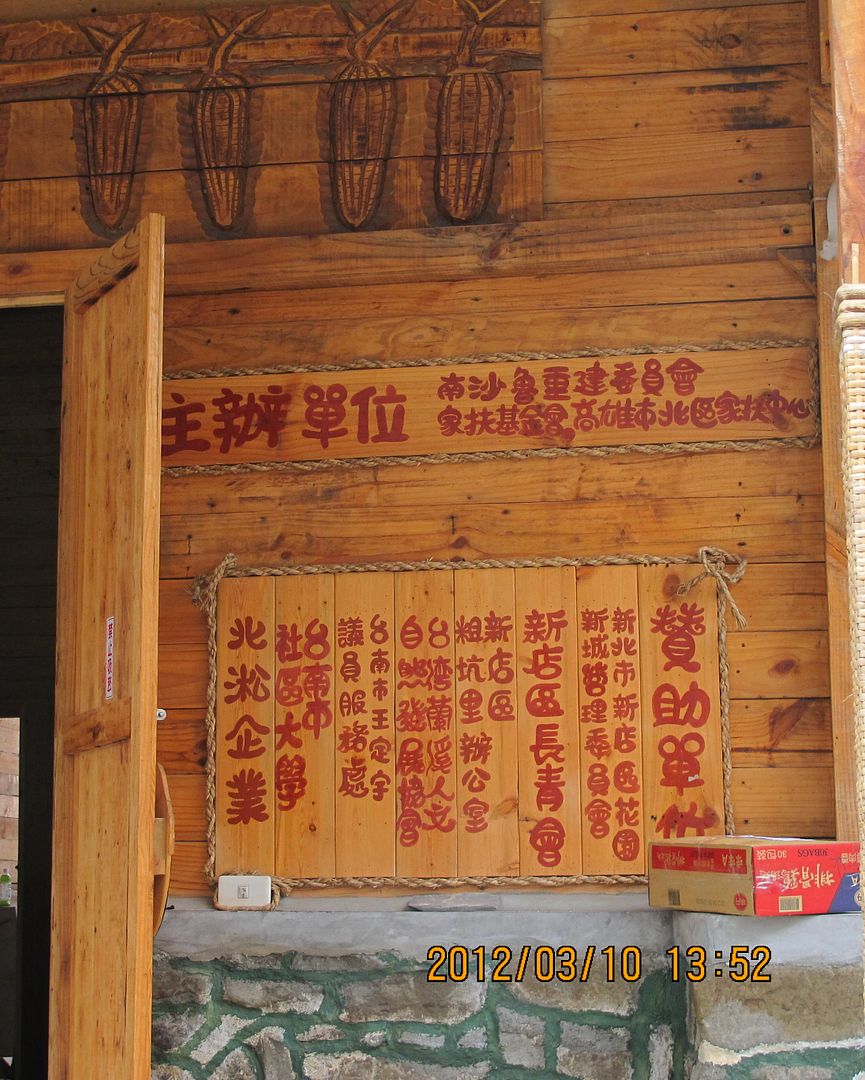 主辦單位
南沙魯重建委員會
家扶基金會,高雄市北區家扶中心
贊助單位
新北市新店區花園
新城管理委員會
新店區長青會
新店區
粗坑里辦公室
台灣蘭溪人文
自然發展協會
台南市王定宇
議員服務處
台南市
社區大學
北淞企業
30BAGS
30包裝
排骨雞
2012/03/10 13:52